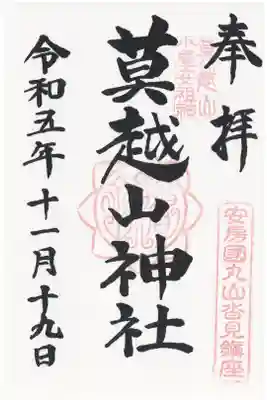 奉拝
莫越山
莫越山神社
安房國丸山沓見鎮座
令和五年十一月十九日